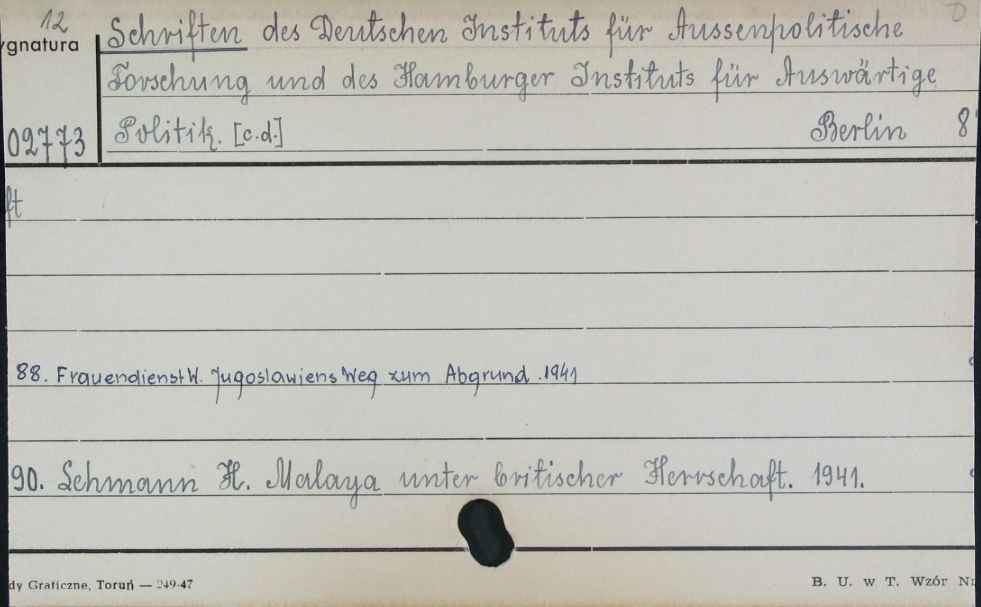 12
ygnatura
Schriften des Deutschen Instituts für Aussenpolitische
Forschung und des Hamburger Instituts für Auswärtige
02773 Politik. [c.d.] Berlin 8
ft
88. Frauendienst W. Jugoslawiens Weg zum Abgrund. 1941
90. Lehmann H. Malaya unter britischer Herrschaft. 1941.
dy Graficzne, Toruń — 249-47 B. U. w T. Wzór Nr